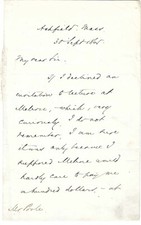 Ashfield, Mass
30 Sept 1865
My dear Sir.
If I declined an
invitation to lecture at
Melrose, which, very
curiously I do not
remember, I am sure
it was only because I
supposed Melrose would
hardly care to pay me
a hundred dollars, at